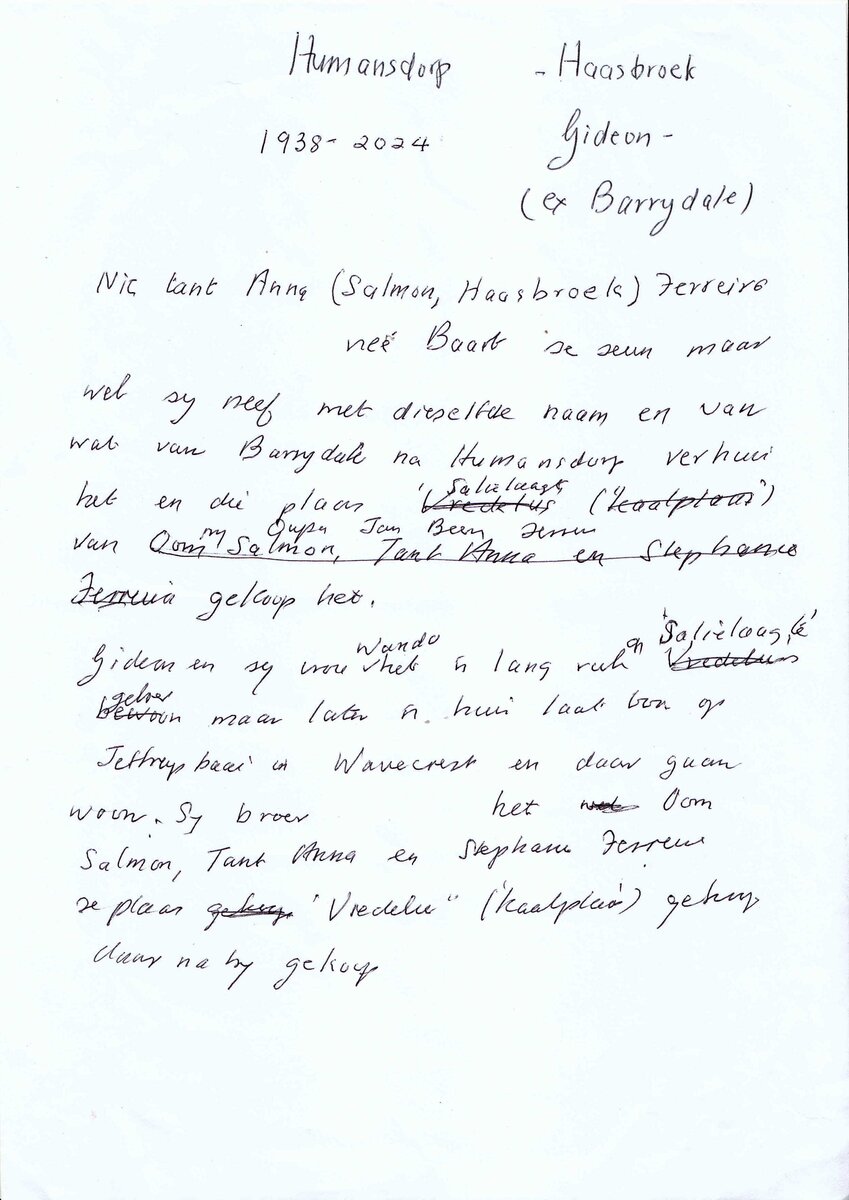 Humansdorp - Haasbroek
1938 - 2024 Gideon -
(ex Barrydale)
Nie tant Anna (Salmon, Haasbroek) Ferreira
neé Baart se seun maar
wel sy neef met dieselfde naam en van
wat van Barrydale na Humansdorp verhuis
het en die plaas 'Vredelus Salielaagte ('kaalplaas')
van Oom Salmon, Tant Anna en Stephanie
my Oupa Jan Ferreira
Ferreira gekoop het.
Gideon en sy vrou Wanda het 'n lang ruk op 'Salielaagte' Vredelus
bewoon geboer maar later 'n huis laat bou op
Jeffreysbaai in Wavecrest en daar gaan
woon. Sy broer het Oom
Salmon, Tant Anna en Stephanie Ferreira
se plaas gekoop "Vredelus" ('kaalplaas') gekoop
daar naby gekoop